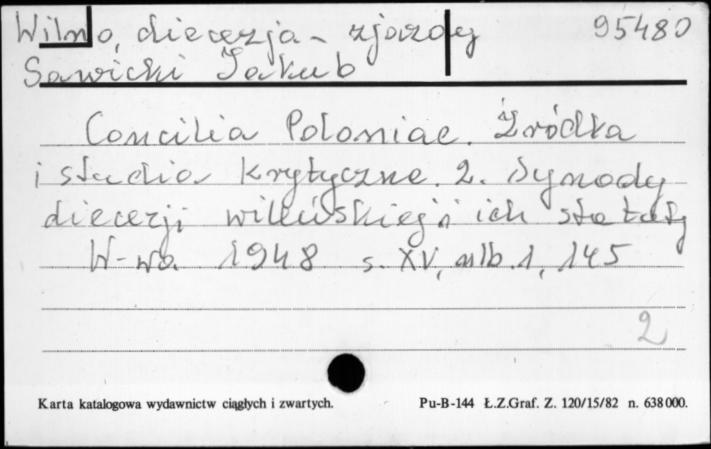 Wilno, diecezja - zjazdy 95480
Sawicki Jakub
Concilia Poloniae. Źródła
i studia krytyczne. 2. Synody
diecezji wileńskiej i ich statuty
W-wa 1948 s. XV, nlb. 1, 145
2
Karta katalogowa wydawnictw ciągłych i zwartych. Pu-B-144 Ł.Z.Graf. Z. 120/15/82 n. 638000.